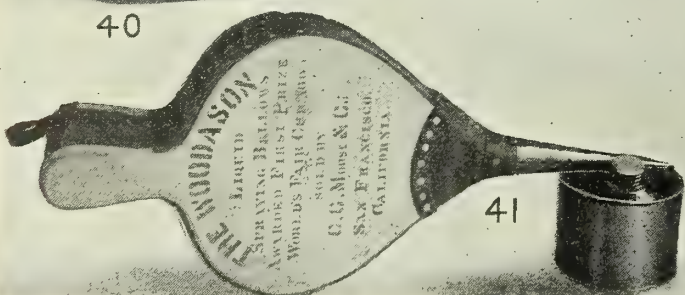 40
THE WOODASON
LIQUID
SPRAYING BELLOWS
AWARDED FIRST PRIZE
WORLD'S FAIR CHICAGO
SOLD BY
C. G. & CO.
SAN FRANCISCO
CALIFORNIA
41